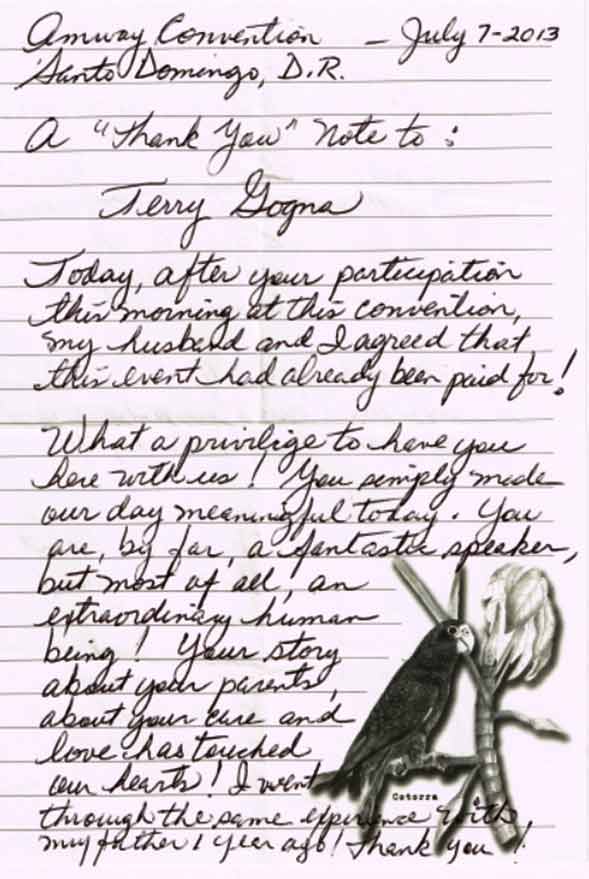 Amway Convention – July 7-2013
Santo Domingo, D.R.
A "Thank You" Note to :
Terry Gogna
Today, after your participation
this morning at this convention,
my husband and I agreed that
this event had already been paid for!
What a privilige to have you
here with us! You simply made
our day meaningful today. You
are, by far, a fantastic speaker,
but most of all, an
extraordinary human
being! Your story
about your parents,
about your care and
love has touched
our hearts! I went
through the same experience with
my father 1 year ago! Thank you!
Cotorra